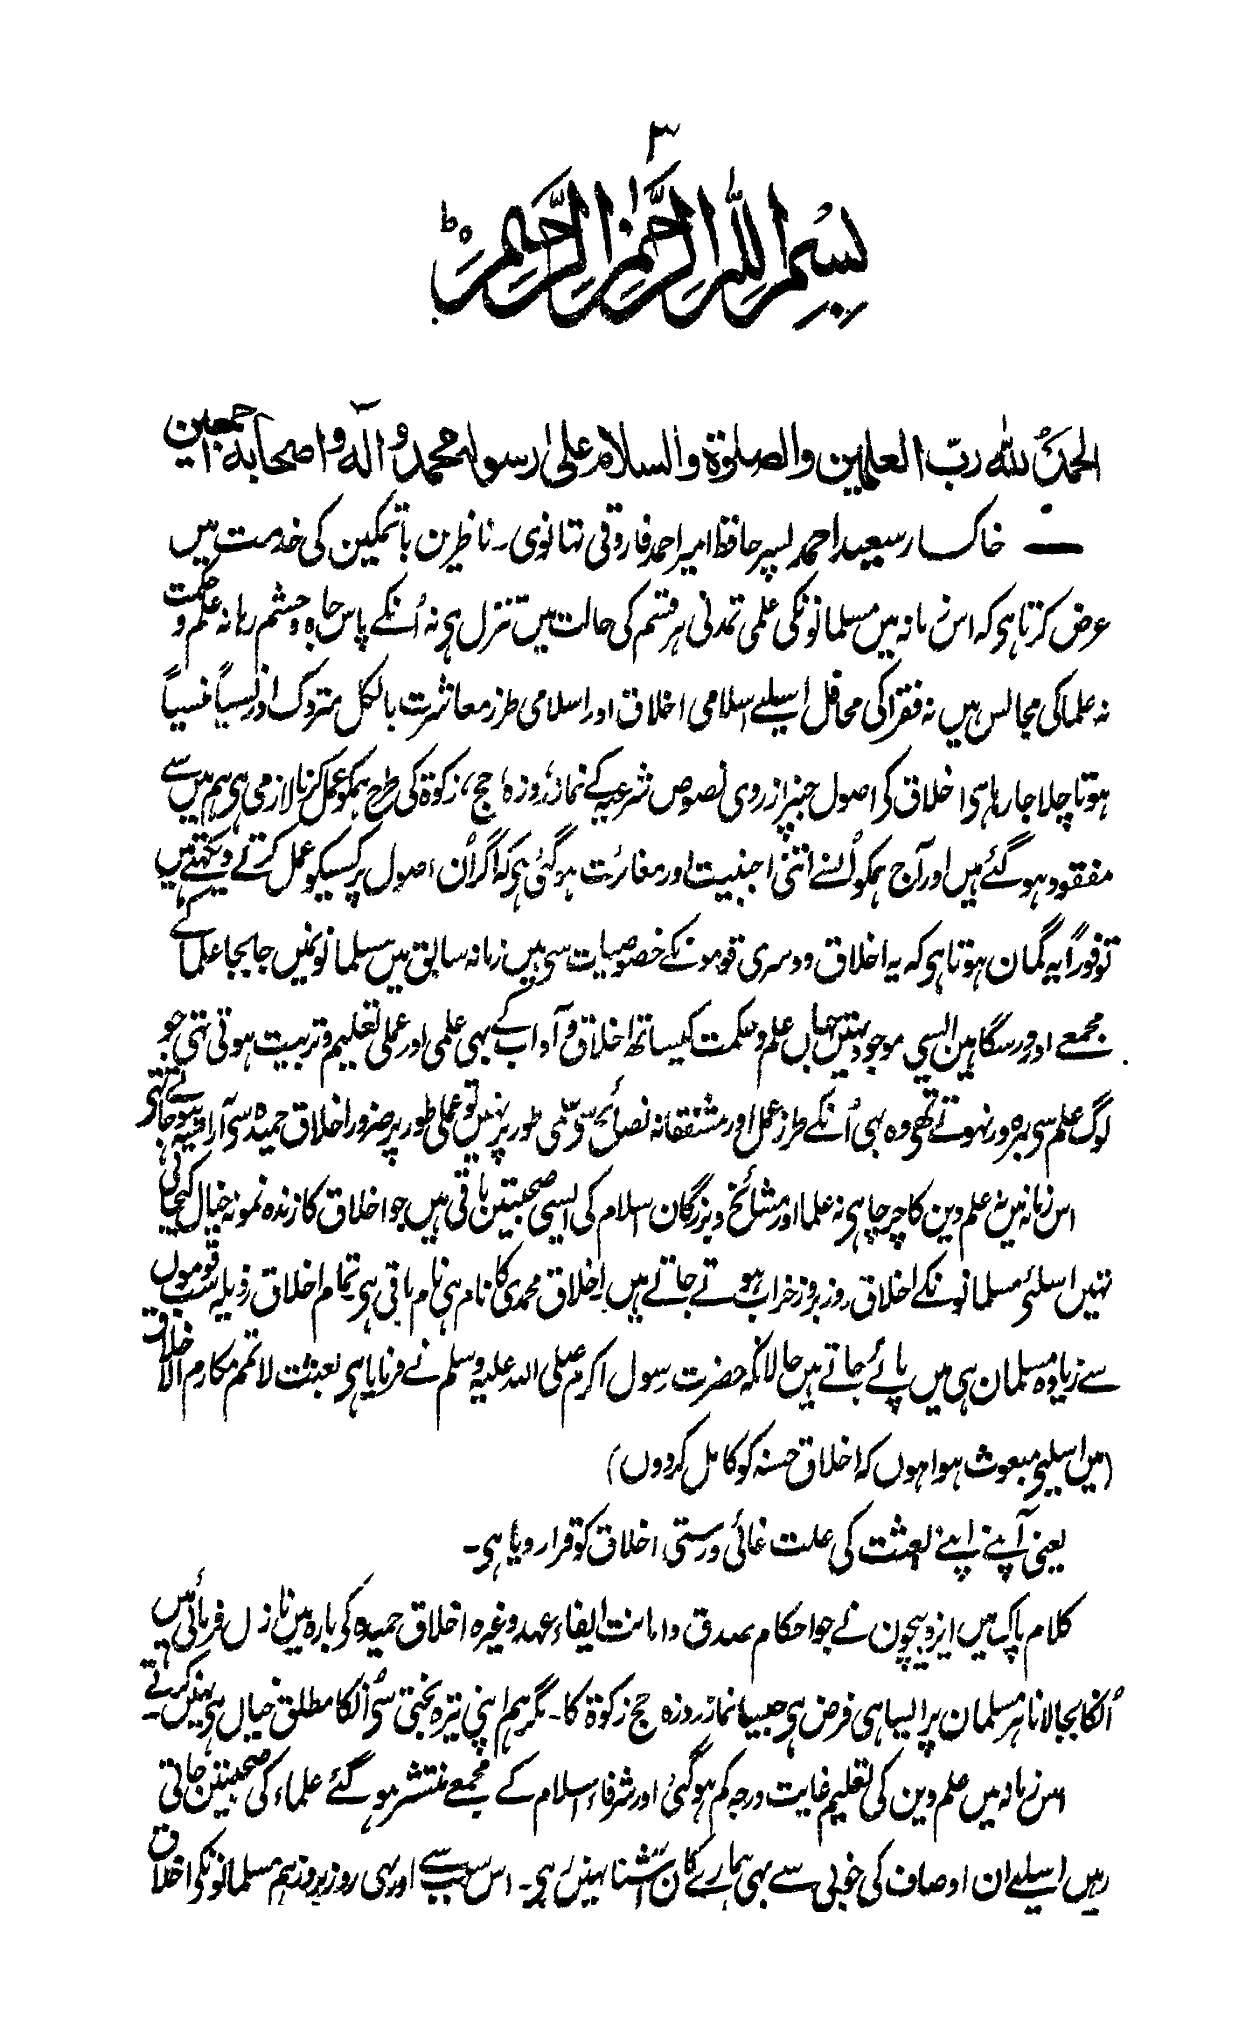 ۳
بسم اللہ الرحمن الرحیم ط
الحمد للہ رب العلمین والصلوۃ والسلام علی رسولہ محمد و آلہ واصحابہ اجمعین
خاکسار سعید احمد پسر حافظ امیر احمد فاروقی تہانوی ۔ ناظرین باتمکین کی خدمت میں
عرض کرتا ہی کہ اس زمانہ میں مسلمانونکی علمی تمدنی ہر قسم کی حالت میں تنزل ہی نہ اُنکے پاس جاہ و حشم رہا نہ علم و حکمت
نہ علما کی مجالس ہیں نہ فقرا کی محافل اسیلیے اسلامی اخلاق اور اسلامی طرز معاشرت بالکل متروک اور نسیاً منسیاً
ہوتا چلا جا رہا ہی اخلاق کی اصول جنپر ازروی نصوص شرعیہ کے نماز، روزہ، حج، زکوۃ کی طرح ہمکو عمل کرنا لازمی ہی ہم میں سے
مفقود ہو گئے ہیں اور آج ہمکو اُنسے اتنی اجنبیت اور مغائرت ہو گئی ہی کہ اگر اُن اصول پر کسیکو عمل کرتے دیکھتے ہیں
تو فوراً یہ گمان ہوتا ہی کہ یہ اخلاق دوسری قومونکے خصوصیات سی ہیں زمانہ سابق میں مسلمانونمیں جابجا علما کے
مجمعے اور درسگاہیں ایسی موجود تہیں جہاں علم و حکمت کیساتھ اخلاق و آداب کے بہی علمی اور عملی تعلیم و تربیت ہوتی تہی جو
لوگ علم سی بہرہ ور نہوتے تھی وہ بہی اُنکے طرز عمل اور مشفقانہ نصائح سی علمی طور پر نہیں تو عملی طور پر ضرور اخلاق حمیدہ سی آراستہ ہو جاتے تہی
اس زمانہ میں نہ علم دین کا چرچا ہی نہ علما اور مشائخ و بزرگان اسلام کی ایسی صحبتیں باقی ہیں جو اخلاق کا زندہ نمونہ خیال کیجاتی
تہیں اسلئی مسلمانونکے اخلاق روز بروز خراب ہوتے جاتے ہیں اخلاق محمدی کا نام ہی نام باقی ہی تمام اخلاق رذیلہ سب قوموں
سے زیادہ مسلمان ہی میں پائے جاتے ہیں حالانکہ حضرت رسول اکرم صلی اللہ علیہ وسلم نے فرمایا ہی بعثت لاتمم مکارم الاخلاق
(میں اسلیی مبعوث ہوا ہوں کہ اخلاق حسنہ کو کامل کر دوں)
یعنی آپنے اپنے بعثت کی علت غائی درستی اخلاق کو قرار دیا ہی ۔
کلام پاک میں ایزد بیچون نے جو احکام صدق و امانت ایفاء عہد وغیرہ اخلاق حمیدہ کی بارہ میں نازل فرمائی ہیں
اُنکا بجالانا ہر مسلمان پر ایسا ہی فرض ہی جیسا نماز روزہ حج زکوۃ کا ۔ مگر ہم اپنی تیرہ بختی سی اُنکا مطلق خیال ہی نہیں کرتے ۔
اس زمانہ میں علم دین کی تعلیم غایت درجہ کم ہو گئی اور شرفاء اسلام کے مجمعے منتشر ہو گئے علماء کی صحبتیں جاتی
رہیں اسلیے ان اوصاف کی خوبی سے بہی ہمارے کان آشنا نہیں ہی ۔ اس سبب سے اور بہی روز بروز ہم مسلمانونکی اخلاق